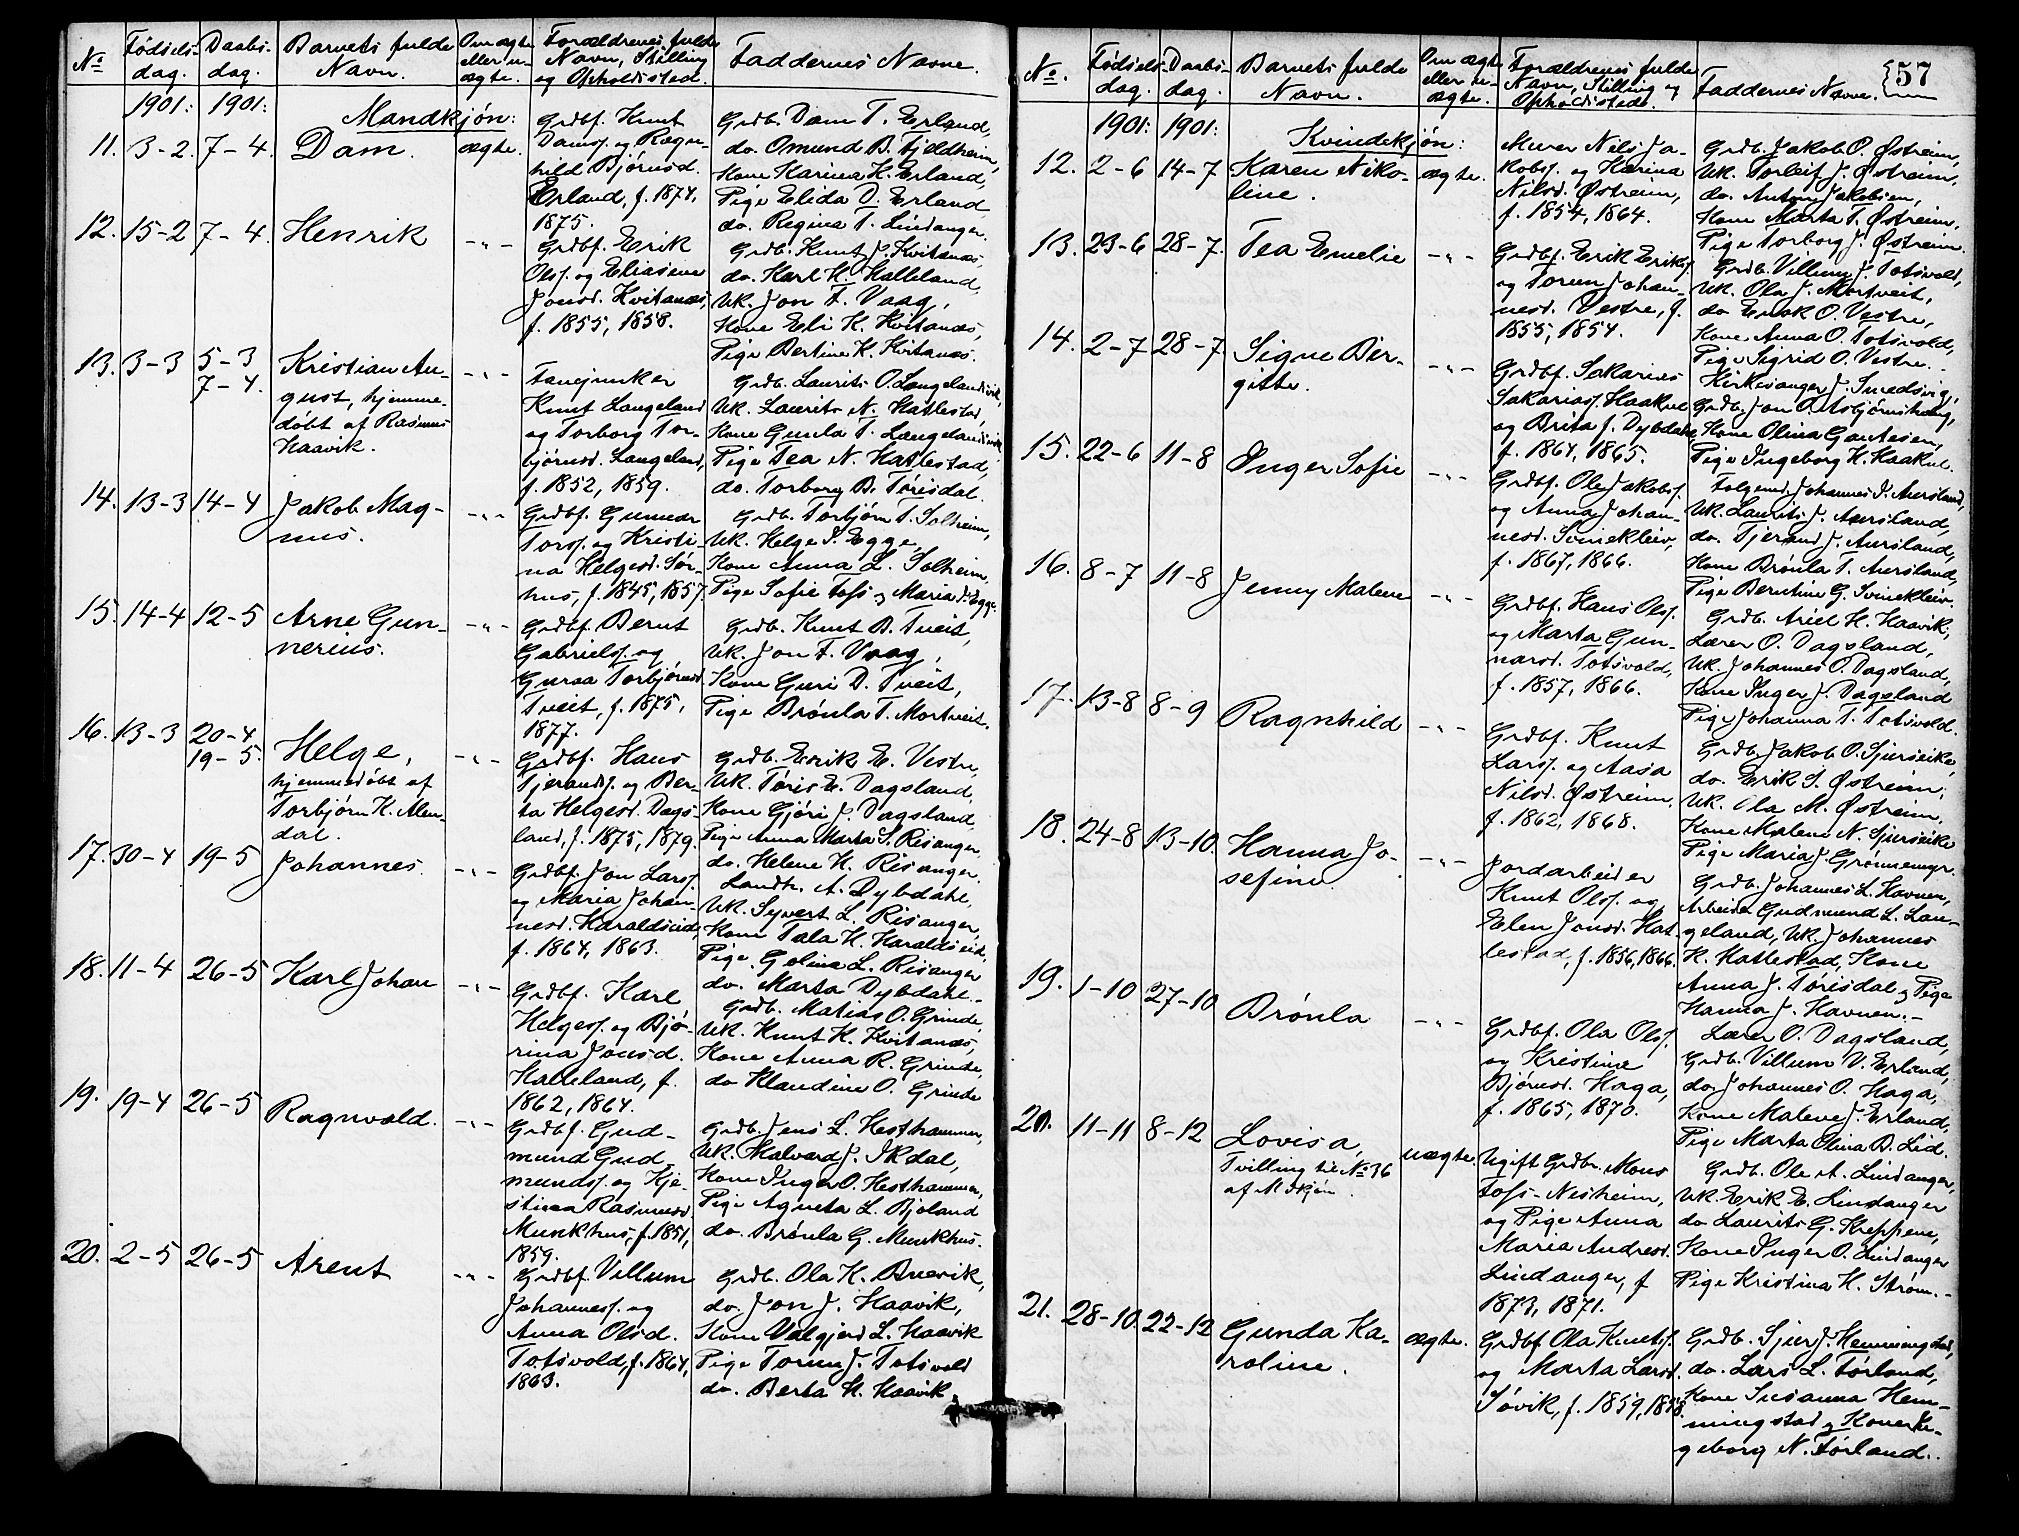 №
Fødsels-
dag.
Daabs-
dag.
Barnets fulde
Navn.
Om ægte
eller u-
ægte.
Forældrenes fulde
Navn, Stilling
og Opholdssted.
Faddernes Navne.
1901: 1901:
Mandkjøn:
11. 3-2. 7-4. Dam. ægte.
Grdbf. Knut
Damss. og Ragn-
hild Bjørnsd.
Erland, f. 1874,
1875.
Grdb. Dam T. Erland,
do. Omund B. Fjeldheim,
Kone Karina K. Erland,
Pige Elida D. Erland
do. Regina T. Lindanger.
12. 15-2 7-4. Henrik -"-
Grdbf. Erik
Olss. og Eliasene
Jonsd. Kvitanæs,
f. 1855, 1858.
Grdb. Knut J. Kvitanæs,
do. Karl K. Halleland,
Uk. Jon F. Vaag,
Kone Eli K. Kvitanæs,
Pige Bertine K. Kvitanæs.
13. 3-3 5-3
7-4.
Kristian Au-
gust, hjemme-
døbt af Rasmus
Haavik.
-"-
Fanejunker
Knut Langeland
og Torborg Tor-
bjørnsd. Langeland,
f. 1852, 1859.
Grdb. Laurits O. Langelandsvik,
Uk. Laurits N. Hatlestad,
Kone Gunla T. Langelandsvik,
Pige Tea N. Hatlestad,
do. Torborg B. Tørisdal.
14. 13-3 14-4 Jakob Mag-
nus.
-"-
Grdbf. Gunnar
Torss. og Kristi-
na Helgesd. Sør-
hus, f. 1845, 1857.
Grdb. Torbjørn T. Solheim,
Uk. Helge I. Egge,
Kone Anna L. Solheim,
Pige Sofie Foss og Maria I. Egge.
15. 14-4 12-5 Arne Gun-
nerius.
-"-
Grdbf. Bernt
Gabrielss. og
Guraa Torbjørnsd.
Tveit, f. 1875,
1877.
Grdb. Knut B. Tveit,
Uk. Jon F. Vaag,
Kone Guri D. Tveit,
Pige Brønla T. Mortveit.
16. 13-3 20-4
19-5.
Helge,
hjemmedøbt af
Torbjørn K. Alen-
dal.
-"-
Grdbf. Hans
Tjerandss. og Ber-
ta Helgesd. Dags-
land, f. 1875, 1879.
Grdb. Erik E. Vestre,
Uk. Tøris E. Dagsland,
Kone Gjøri J. Dagsland,
Pige Anna Marta S. Risanger
do. Helene K. Risanger.
17. 30-4 19-5 Johannes. -"-
Grdbf. Jon Larss.
og Maria Johan-
nesd. Haraldseid,
f. 1864, 1863.
Landh. A. Dybdahl,
Uk. Syvert L. Risanger,
Kone Tala K. Haraldseid,
Pige Golina L. Risanger
do. Marta Dybdahl.
18. 11-4 26-5 Karl Johan -"-
Grdbf. Karl
Helgess. og Bjø-
rina Jonsd.
Halleland, f.
1862, 1864.
Grdb. Matias O. Grinde,
Uk. Knut K. Kvitanæs,
Kone Anna R. Grinde,
do Klaudine O. Grinde
19. 19-4 26-5 Ragnvald. -"-
Grdbf. Gud-
mund Gud-
mundss. og Kje-
stinaa Rasmusd.
Munkhus, f. 1851,
1859.
Grdb. Jens L. Hesthammer,
Uk. Halvard J. Økdal,
Kone Inger O. Hesthammer,
Pige Agneta L. Bjoland
do. Brønla G. Munkhus.
20. 2-5 26-5 Arent -"-
Grdbf. Villum
Johanness. og
Anna Olsd.
Totsvold, f. 1864,
1863.
Grdb. Ola K. Bnevik,
do. Jon J. Haavik,
Kone Valgjerd L. Haavik
Pige Torun J. Totsvold
do. Berta K. Haavik
57
№.
Fødsels-
dag.
Daabs-
dag.
Barnets fulde
Navn.
Om ægte
eller u-
ægte.
Forældrenes fulde
Navn, Stilling og
Opholdssted.
Faddernes Navne.
1901: 1901:
Kvindekjøn:
12. 2-6 14-7 Karen Niko-
line.
ægte.
Murer Nils Ja-
kobss. og Karina
Nilsd. Østreim,
f. 1854, 1864.
Grdb. Jakob O. Østreim,
Uk. Torleif J. Østreim,
do. Anton Jakobsen,
Kone Marta T. Østreim,
Pige Torborg J. Østreim.
13. 23-6 28-7. Tea Emelie -"-
Grdbf. Erik Erikss.
og Torun Johan-
nesd. Vestre, f.
1855, 1854.
Grdb. Villum J. Totsvold,
Uk. Ola J. Mortveit,
do Enok O. Vestre,
Kone Anna O. Totsvold,
Pige Sigrid O. Vestre.
14. 2-7 28-7 Signe Bir-
gitte.
-"-
Grdbf. Sakarias
Sakariass. Haakul
og Brita f. Dybdahl,
f. 1864, 1865.
Kirkesanger J. Smedsvig,
Grdb. Jon O. Asbjørnshaug,
Kone Olina Gautesen,
Pige Ingeborg K. Haakul.
15. 22-6 11-8 Inger Sofie -"-
Grdbf. Ole Jakobss.
og Anna Johan-
nesd. Svinekleiv,
f. 1867, 1866.
Folgemd. Johannes I. Aursland,
Uk. Laurits J. Aursland,
do. Tjerand J. Aursland,
Kone Brønla T. Aursland,
Pige Berntine G. Svinekleiv.
16. 8-7 11-8 Jenny Malene -"-
Grdbf. Hans Olss.
og Marta Gun-
narsd. Totsvold,
f. 1857, 1866.
Grdb. Ariel H. Haavik,
Lærer O. Dagsland,
Uk. Johannes O. Dagsland,
Kone Inger J. Dagsland
Pige Johanna T. Totsvold.
17. 13-8 8-9 Ragnhild -"-
Grdbf. Knut
Larss. og Aasa
Nilsd. Østreim,
f. 1862, 1868.
Grdb. Jakob O. Sjurseike,
do. Erik S. Østreim,
Uk. Ola M. Østreim,
Kone Malene N. Sjurseike
Pige Maria J. Grønnemyr.
18. 24-8 13-10. Hanna Jo-
sefine.
-"-
Jordarbeider
Knut Olss. og
Elen Jonsd. Hat-
lestad, f. 1856, 1866.
Grdb. Johannes L. Havnen,
Arbeider Gudmund L. Lan-
geland, Uk. Johannes
K. Hatlestad, Kone
Anna J. Tørisdal og Pige
Hanna J. Havnen.-
19. 1-10 27-10 Brønla -"-
Grdbf. Ola Olss.
og Kristine
Bjørnsd. Haga,
f. 1865, 1870.
Lærer O. Dagsland,
Grdb. Villum V. Erland,
do. Johannes O. Haga,
Kone Malene J. Erland,
Pige Marta Olina B. Lid.
20. 11-11 8-12 Lovisa,
Tvilling til № 36
af M.kjøn.
uægte.
Ugift Grdbr. Mons
Foss-Nesheim,
og Pige Anna
Maria Andersd.
Lindanger, f
1873, 1871.
Grdb. Ole A. Lindanger,
Uk. Erik E. Lindanger
do Laurits G. Kreppene,
Kone Inger O. Lindanger
Pige Kristina K. Strøm.-
21. 28-10. 22-12 Gunda Ka-
roline.
ægte.
Grdbf. Ola Knutss.
og Marta Larsd.
Søvik, f. 1859, 1858.
Grdb. Sjur J. Hemmingstad,
do. Lars L. Førland,
Kone Susanna Hem-
mingstad og Kone In-
geborg N. Førland.